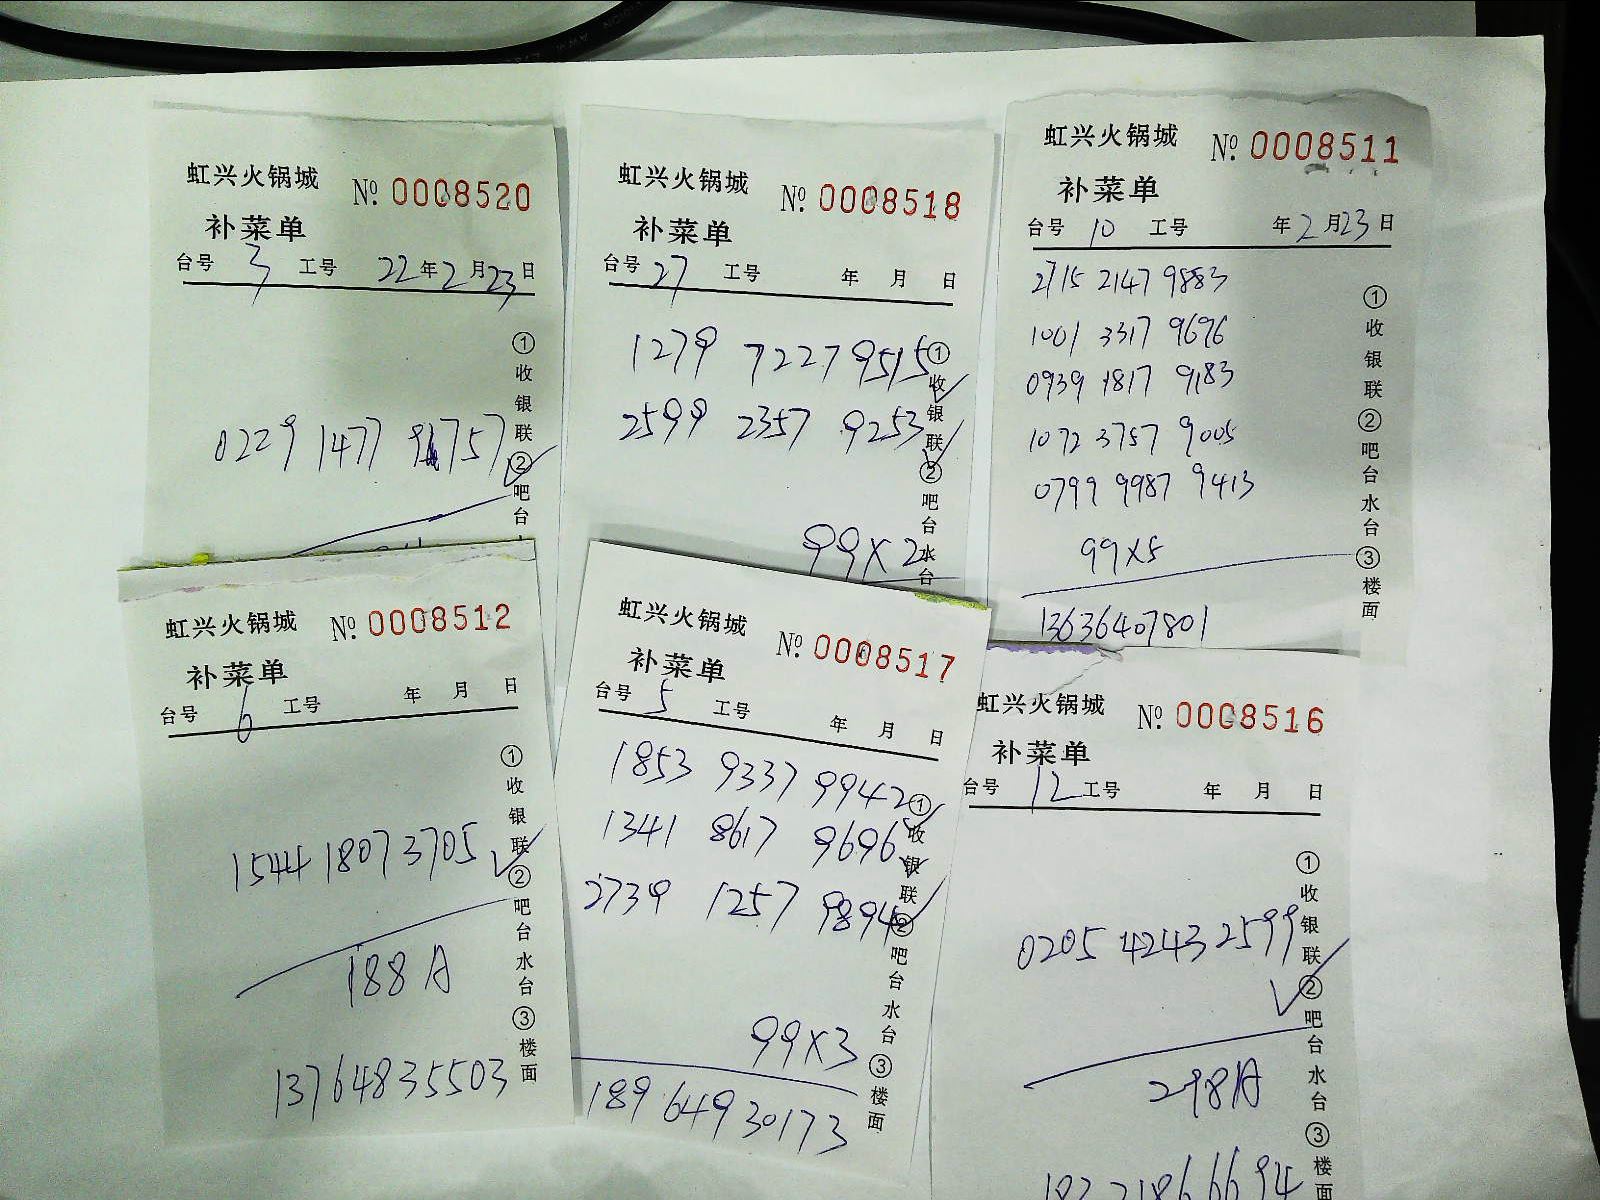 虹兴火锅城 № 0008520
补菜单
台号 3 工号 22年2月23日
0229 1477 9 757
①收银联②吧台
虹兴火锅城 № 0008518
补菜单
台号 27 工号 年 月 日
1279 7227 9515
2599 2357 9253
99×2
①收银联②吧台水台
虹兴火锅城 № 0008511
补菜单
台号 10 工号 年2月23日
2715 2147 9883
1001 3317 9696
0939 1817 9183
1072 3757 9005
0799 9987 9413
99×5
13636407801
①收银联②吧台水台③楼面
虹兴火锅城 № 0008512
补菜单
台号 6 工号 年 月 日
1544 1807 3705
188A
13764835503
①收银联②吧台水台③楼面
虹兴火锅城 № 0008517
补菜单
台号 5 工号 年 月 日
1853 9337 9942
1341 8617 9696
2739 1257 9894
99×3
18964930173
①收银联②吧台水台③楼面
虹兴火锅城 № 0008516
补菜单
台号 12 工号 年 月 日
0205 4243 2599
298A
①收银联②吧台水台③楼面